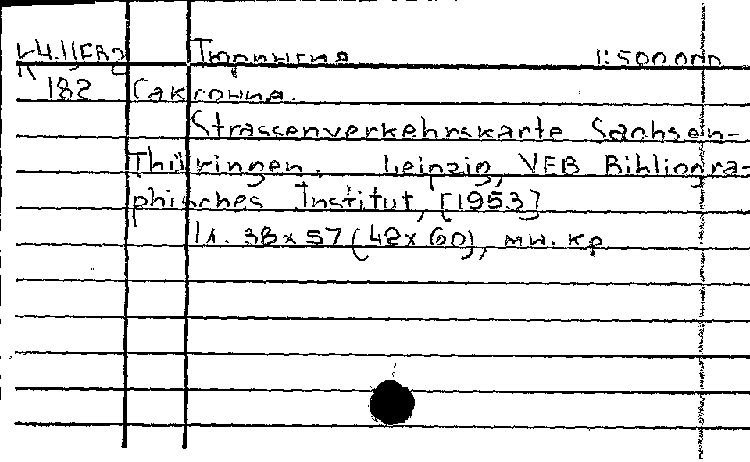 Тюрингия 1:500 000
182 Саксония.
Strassenverkehrskarte Sachsen-
Thüringen. Leipzig, VEB Bibliogra-
phisches Institut, [1953]
1л. 38x57 (48x60), мн. кр